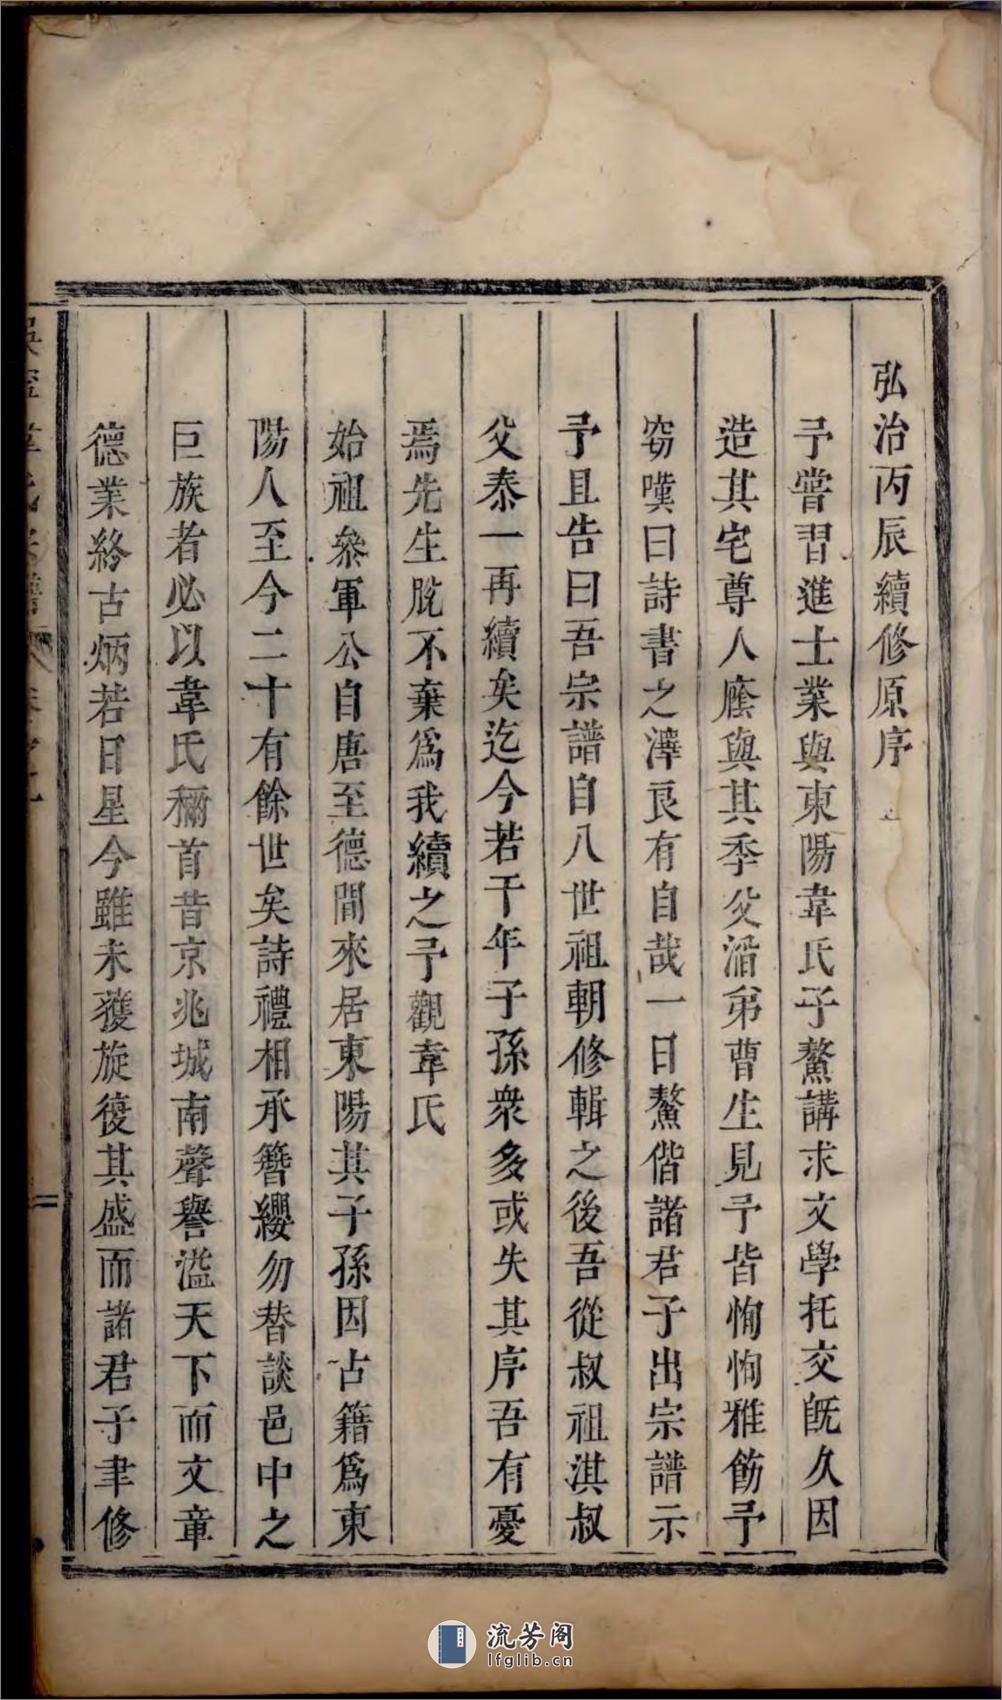 弘治丙辰續修原序
予嘗習進士業與東陽韋氏子鰲講求文學托交旣久因
造其宅尊人廕與其季父濳弟曹生見予皆恂恂雅飭予
窈嘆曰詩書之澤良有自哉一日鰲偕諸君子出宗譜示
予且告曰吾宗譜自八世祖朝修輯之後吾從叔祖淇叔
父泰一再續矣迄今若干年子孫衆多或失其序吾有憂
焉先生脫不棄爲我續之予觀韋氏
始祖叅軍公自唐至德間來居東陽其子孫因占籍爲東
陽人至今二十有餘世矣詩禮相承簪纓勿替談邑中之
巨族者必以韋氏稱首昔京兆城南聲譽溢天下而文章
德業終古炳若日星今雖未獲旋復其盛而諸君子聿修
流芳阁
lfglib.cn